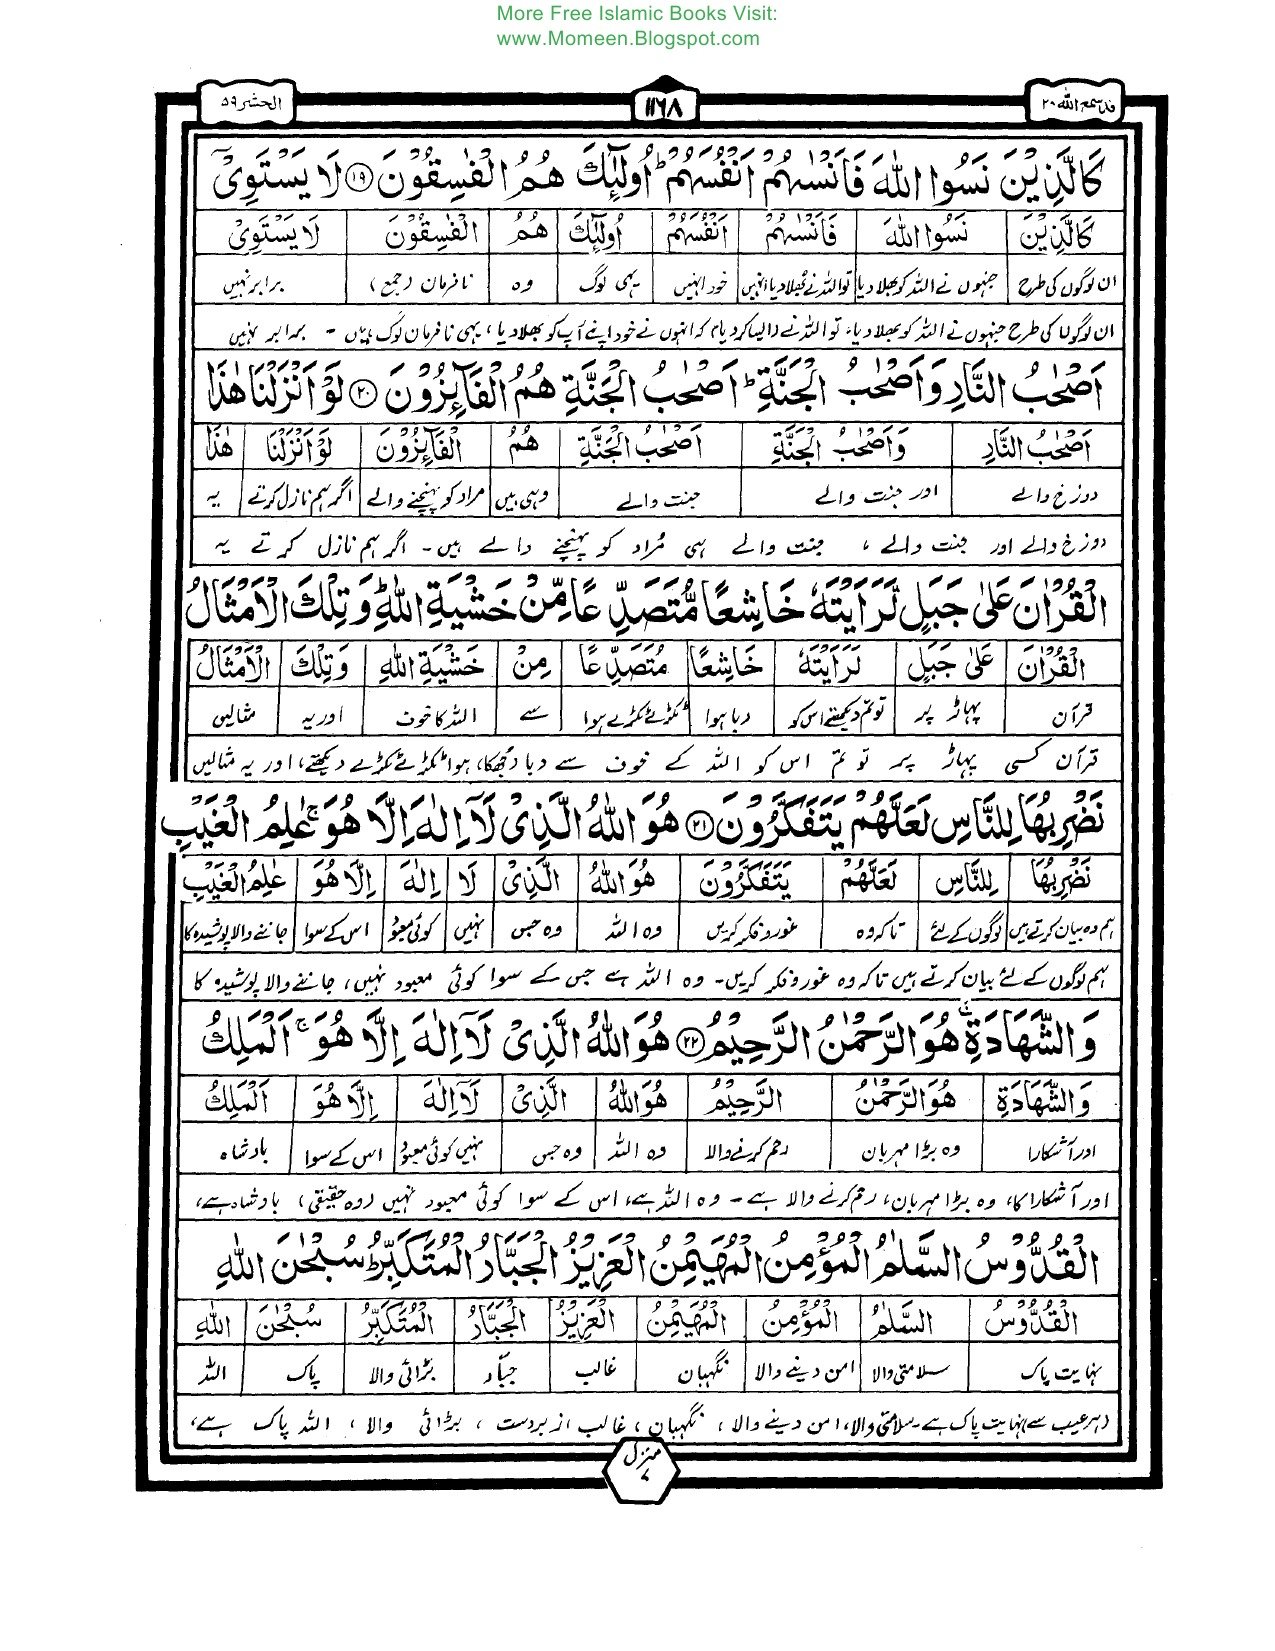 More Free Islamic Books Visit:
www.Momeen.Blogspot.com
قد سمع الله ۲۸ ۱۱۶۸ الحشر ۵۹
كَالَّذِيْنَ نَسُوا اللّٰهَ فَاَنْسٰىهُمْ اَنْفُسَهُمْ ؕ اُولٰٓئِكَ هُمُ الْفٰسِقُوْنَ ۝۱۹ لَا يَسْتَوِيْٓ
كَالَّذِيْنَ نَسُوا اللّٰهَ فَاَنْسٰىهُمْ اَنْفُسَهُمْ اُولٰٓئِكَ هُمُ الْفٰسِقُوْنَ لَا يَسْتَوِيْٓ
ان لوگوں کی طرح جنہوں نے اللہ کو بھلا دیا تو اللہ نے بھلا دیا انہیں خود انہیں یہی لوگ وہ نافرمان (جمع) برابر نہیں
ان لوگوں کی طرح جنہوں نے اللہ کو بھلا دیا، تو اللہ نے (ایسا کر دیا) کہ انہوں نے خود اپنے آپ کو بھلا دیا، یہی نافرمان لوگ ہیں ۔ برابر نہیں
اَصْحٰبُ النَّارِ وَاَصْحٰبُ الْجَنَّةِ ؕ اَصْحٰبُ الْجَنَّةِ هُمُ الْفَآئِزُوْنَ ۝۲۰ لَوْ اَنْزَلْنَا هٰذَا
اَصْحٰبُ النَّارِ وَاَصْحٰبُ الْجَنَّةِ اَصْحٰبُ الْجَنَّةِ هُمُ الْفَآئِزُوْنَ لَوْ اَنْزَلْنَا هٰذَا
دوزخ والے اور جنت والے جنت والے وہی ہیں مراد کو پہنچنے والے اگر ہم نازل کرتے یہ
دوزخ والے اور جنت والے ، جنت والے ہی مُراد کو پہنچنے والے ہیں ۔ اگر ہم نازل کرتے یہ
الْقُرْاٰنَ عَلٰى جَبَلٍ لَّرَاَيْتَهٗ خَاشِعًا مُّتَصَدِّعًا مِّنْ خَشْيَةِ اللّٰهِ ؕ وَتِلْكَ الْاَمْثَالُ
الْقُرْاٰنَ عَلٰى جَبَلٍ لَّرَاَيْتَهٗ خَاشِعًا مُتَصَدِّعًا مِنْ خَشْيَةِ اللّٰهِ وَتِلْكَ الْاَمْثَالُ
قرآن پہاڑ پر تو تم دیکھتے اس کو دبا ہوا ٹکڑے ٹکڑے ہوا سے اللہ کا خوف اور یہ مثالیں
قرآن کسی پہاڑ پر تو تم اس کو اللہ کے خوف سے دبا (جھکا) ہوا ٹکڑے ٹکڑے دیکھتے، اور یہ مثالیں
نَضْرِبُهَا لِلنَّاسِ لَعَلَّهُمْ يَتَفَكَّرُوْنَ ۝۲۱ هُوَ اللّٰهُ الَّذِيْ لَآ اِلٰهَ اِلَّا هُوَ ۚ عٰلِمُ الْغَيْبِ
نَضْرِبُهَا لِلنَّاسِ لَعَلَّهُمْ يَتَفَكَّرُوْنَ هُوَ اللّٰهُ الَّذِيْ لَا اِلٰهَ اِلَّا هُوَ عٰلِمُ الْغَيْبِ
ہم وہ بیان کرتے ہیں لوگوں کے لئے تاکہ وہ غور و فکر کریں وہ اللہ وہ جس نہیں کوئی معبود اس کے سوا جاننے والا پوشیدہ کا
ہم لوگوں کے لئے بیان کرتے ہیں تاکہ وہ غور و فکر کریں۔ وہ اللہ ہے جس کے سوا کوئی معبود نہیں، جاننے والا پوشیدہ کا
وَالشَّهَادَةِ ۚ هُوَ الرَّحْمٰنُ الرَّحِيْمُ ۝۲۲ هُوَ اللّٰهُ الَّذِيْ لَآ اِلٰهَ اِلَّا هُوَ ۚ اَلْمَلِكُ
وَالشَّهَادَةِ هُوَ الرَّحْمٰنُ الرَّحِيْمُ هُوَ اللّٰهُ الَّذِيْ لَآ اِلٰهَ اِلَّا هُوَ اَلْمَلِكُ
اور آشکارا وہ بڑا مہربان رحم کرنے والا وہ اللہ وہ جس نہیں کوئی معبود اس کے سوا بادشاہ
اور آشکارا کا، وہ بڑا مہربان، رحم کرنے والا ہے ۔ وہ اللہ ہے، اس کے سوا کوئی معبود نہیں (وہ حقیقی) بادشاہ ہے،
الْقُدُّوْسُ السَّلٰمُ الْمُؤْمِنُ الْمُهَيْمِنُ الْعَزِيْزُ الْجَبَّارُ الْمُتَكَبِّرُ ؕ سُبْحٰنَ اللّٰهِ
الْقُدُّوْسُ السَّلٰمُ الْمُؤْمِنُ الْمُهَيْمِنُ الْعَزِيْزُ الْجَبَّارُ الْمُتَكَبِّرُ سُبْحٰنَ اللّٰهِ
نہایت پاک سلامتی والا امن دینے والا نگہبان غالب جبّار بڑائی والا پاک اللہ
(ہر عیب سے) نہایت پاک ہے۔ سلامتی والا، امن دینے والا ، نگہبان، غالب، زبردست ، بڑائی والا ، اللہ پاک ہے،
منزل ۷